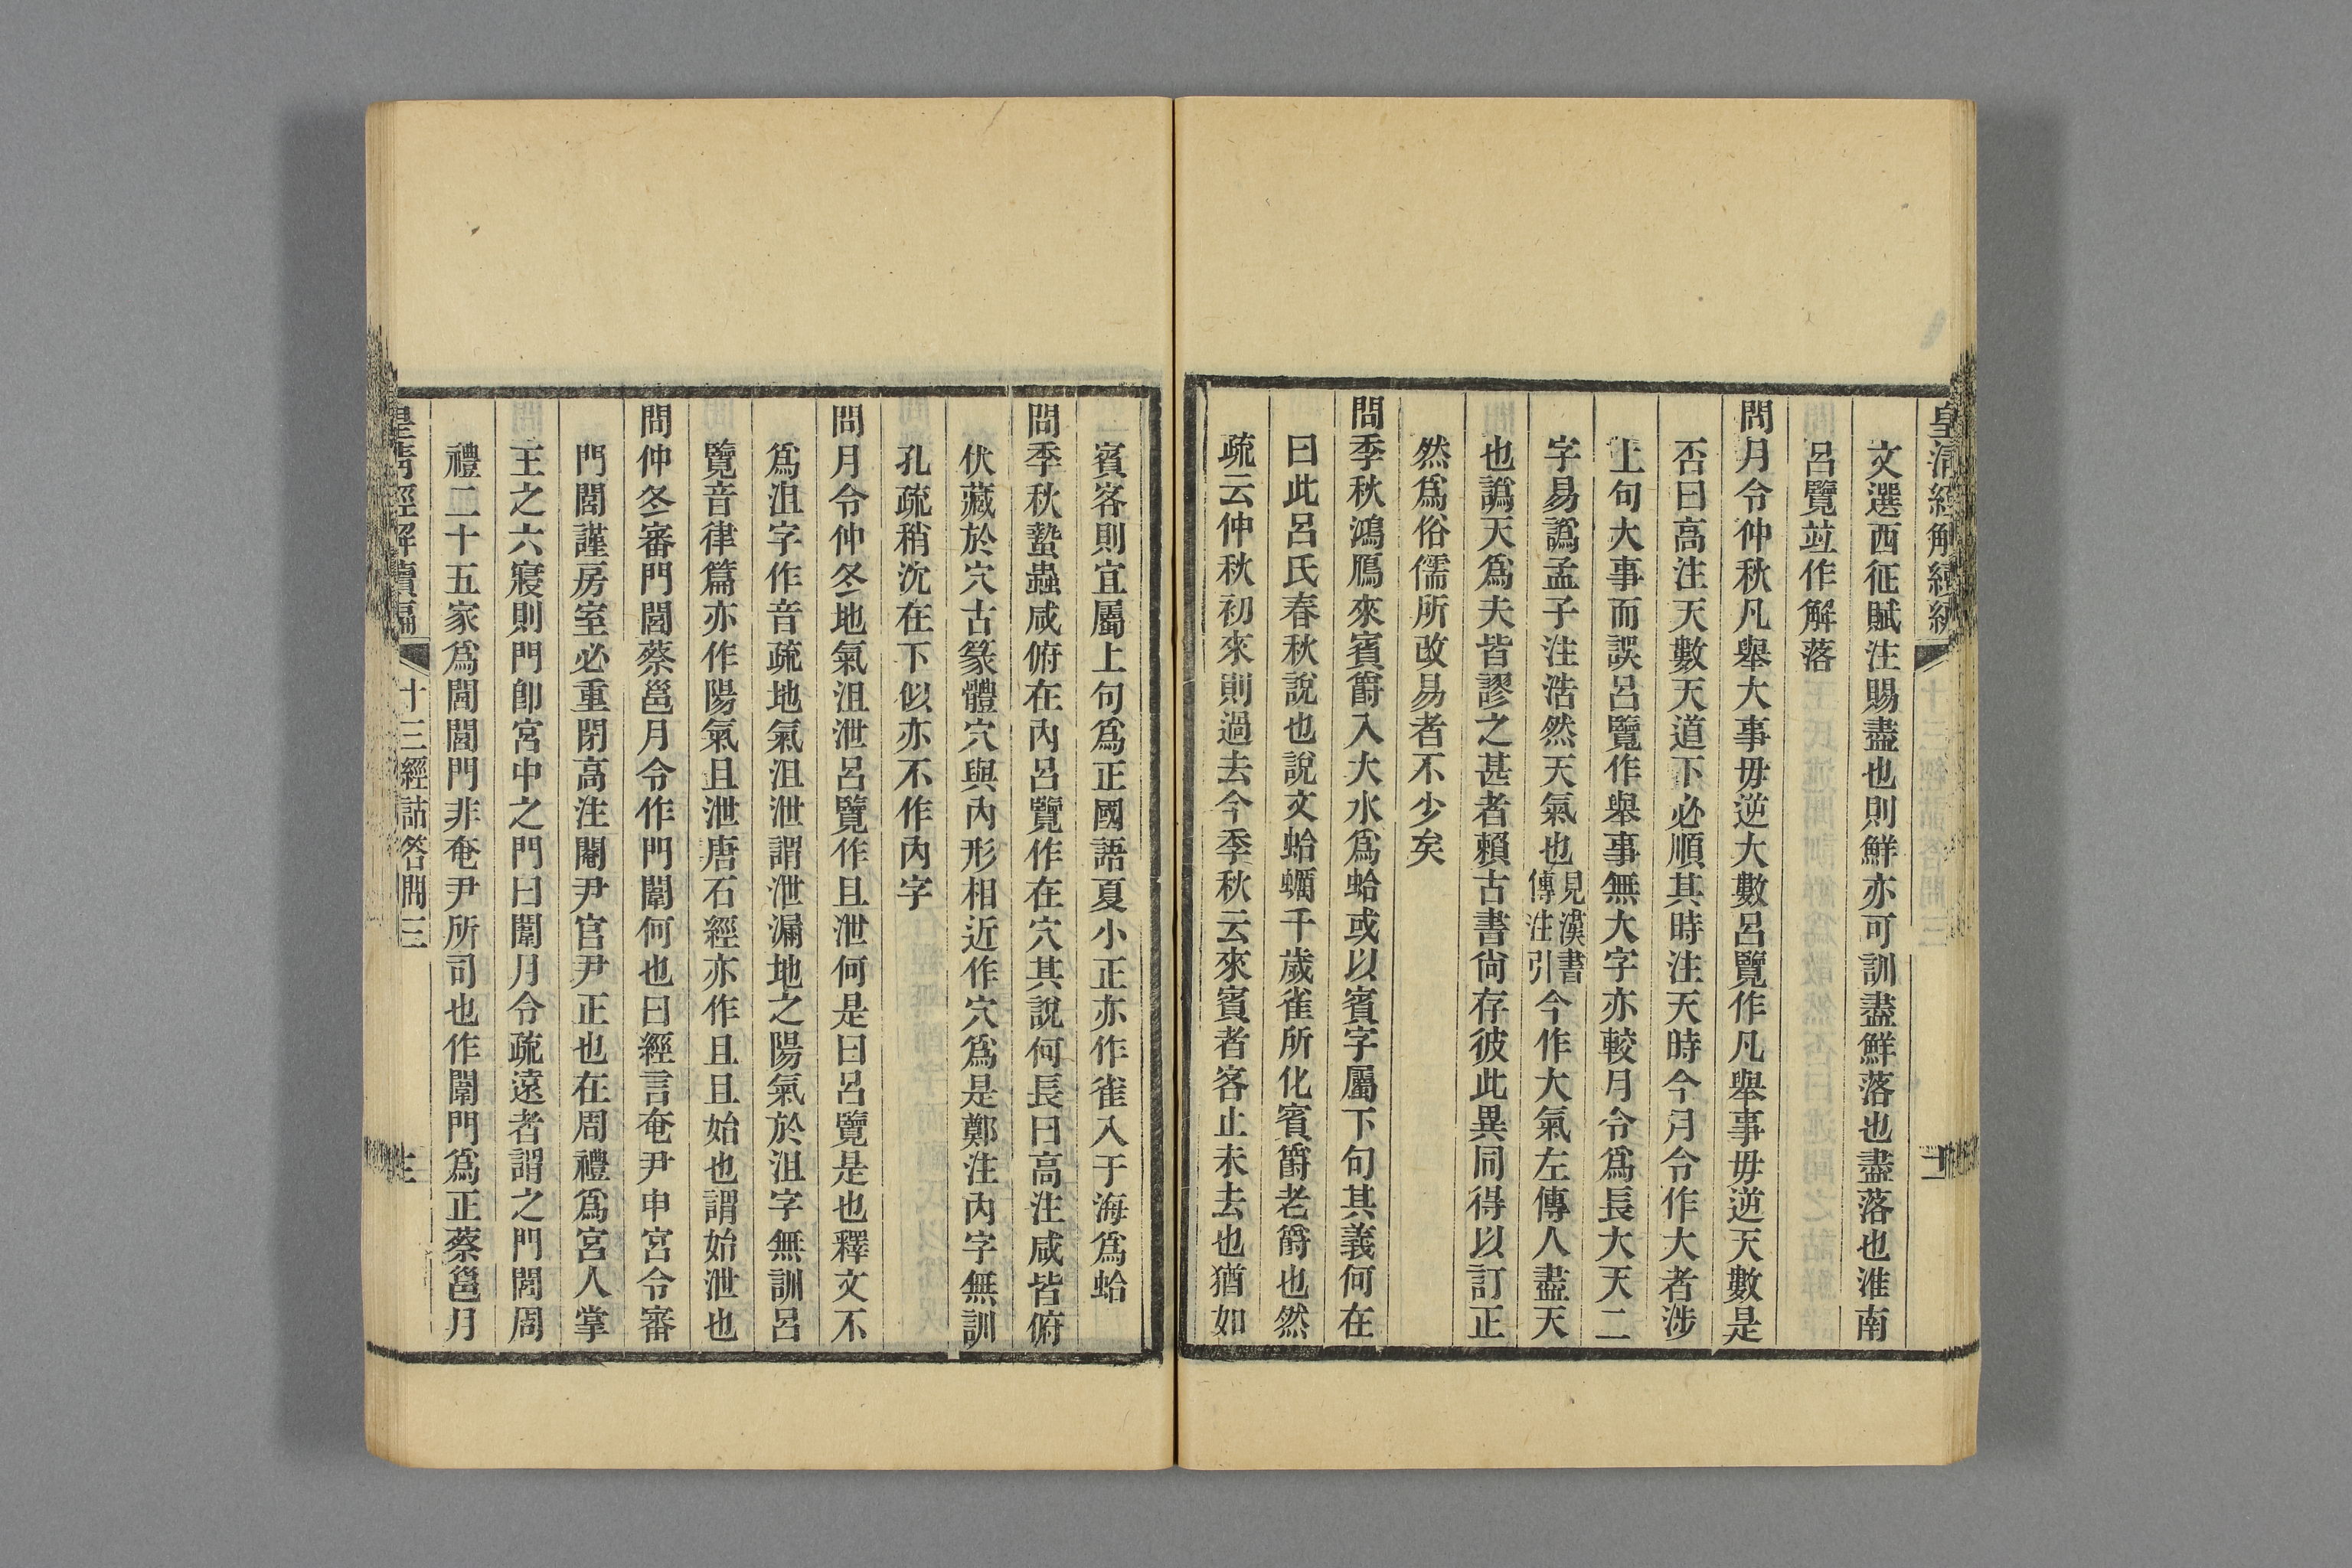 皇清經解續編
文選西征賦注賜盡也則鮮亦可訓盡鮮落也盡落也淮南
呂覽竝作解落
問月令仲秋凡舉大事毋逆大數呂覽作凡舉事毋逆天數是
否曰高注天數天道下必順其時注天時今月令作大者涉
上句大事而誤呂覽作舉事無大字亦較月令爲長大天二
字易譌孟子注浩然天氣也見漢書傳注引今作大氣左傳人盡天
也譌天爲夫皆謬之甚者賴古書尙存彼此異同得以訂正
然爲俗儒所改易者不少矣
問季秋鴻鴈來賓爵入大水爲蛤或以賓字屬下句其義何在
曰此呂氏春秋說也說文蛤蠣千歲雀所化賓爵老爵也然
疏云仲秋初來則過去今季秋云來賓者客止未去也猶如
賓客則宜屬上句爲正國語夏小正亦作雀入于海爲蛤
問季秋蟄蟲咸俯在內呂覽作在穴其說何長曰高注咸皆俯
伏藏於穴古篆體穴與內形相近作穴爲是鄭注內字無訓
孔疏稍沈在下似亦不作內字
問月令仲冬地氣沮泄呂覽作且泄何是曰呂覽是也釋文不
爲沮字作音疏地氣沮泄謂泄漏地之陽氣於沮字無訓呂
覽音律篇亦作陽氣且泄唐石經亦作且且始也謂始泄也
問仲冬審門閭蔡邕月令作門闈何也曰經言奄尹申宮令審
門閭謹房室必重閉高注閹尹官尹正也在周禮爲宮人掌
王之六寢則門卽宮中之門曰闈月令疏遠者謂之門閭周
禮二十五家爲閭閭門非奄尹所司也作闈門爲正蔡邕月
皇清經解續編
十三經詁答問三